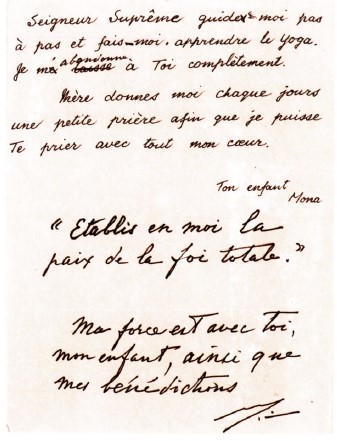 Seigneur Suprême guidez-moi pas
à pas et fais-moi apprendre le Yoga.
Je m'abandonne à Toi complètement.
Mère donnes moi chaque jours
une petite prière afin que je puisse
Te prier avec tout mon cœur.
Ton enfant
Mona
"Etablis en moi la
paix de la foi totale."
Ma force est avec toi,
mon enfant, ainsi que
mes bénédictions